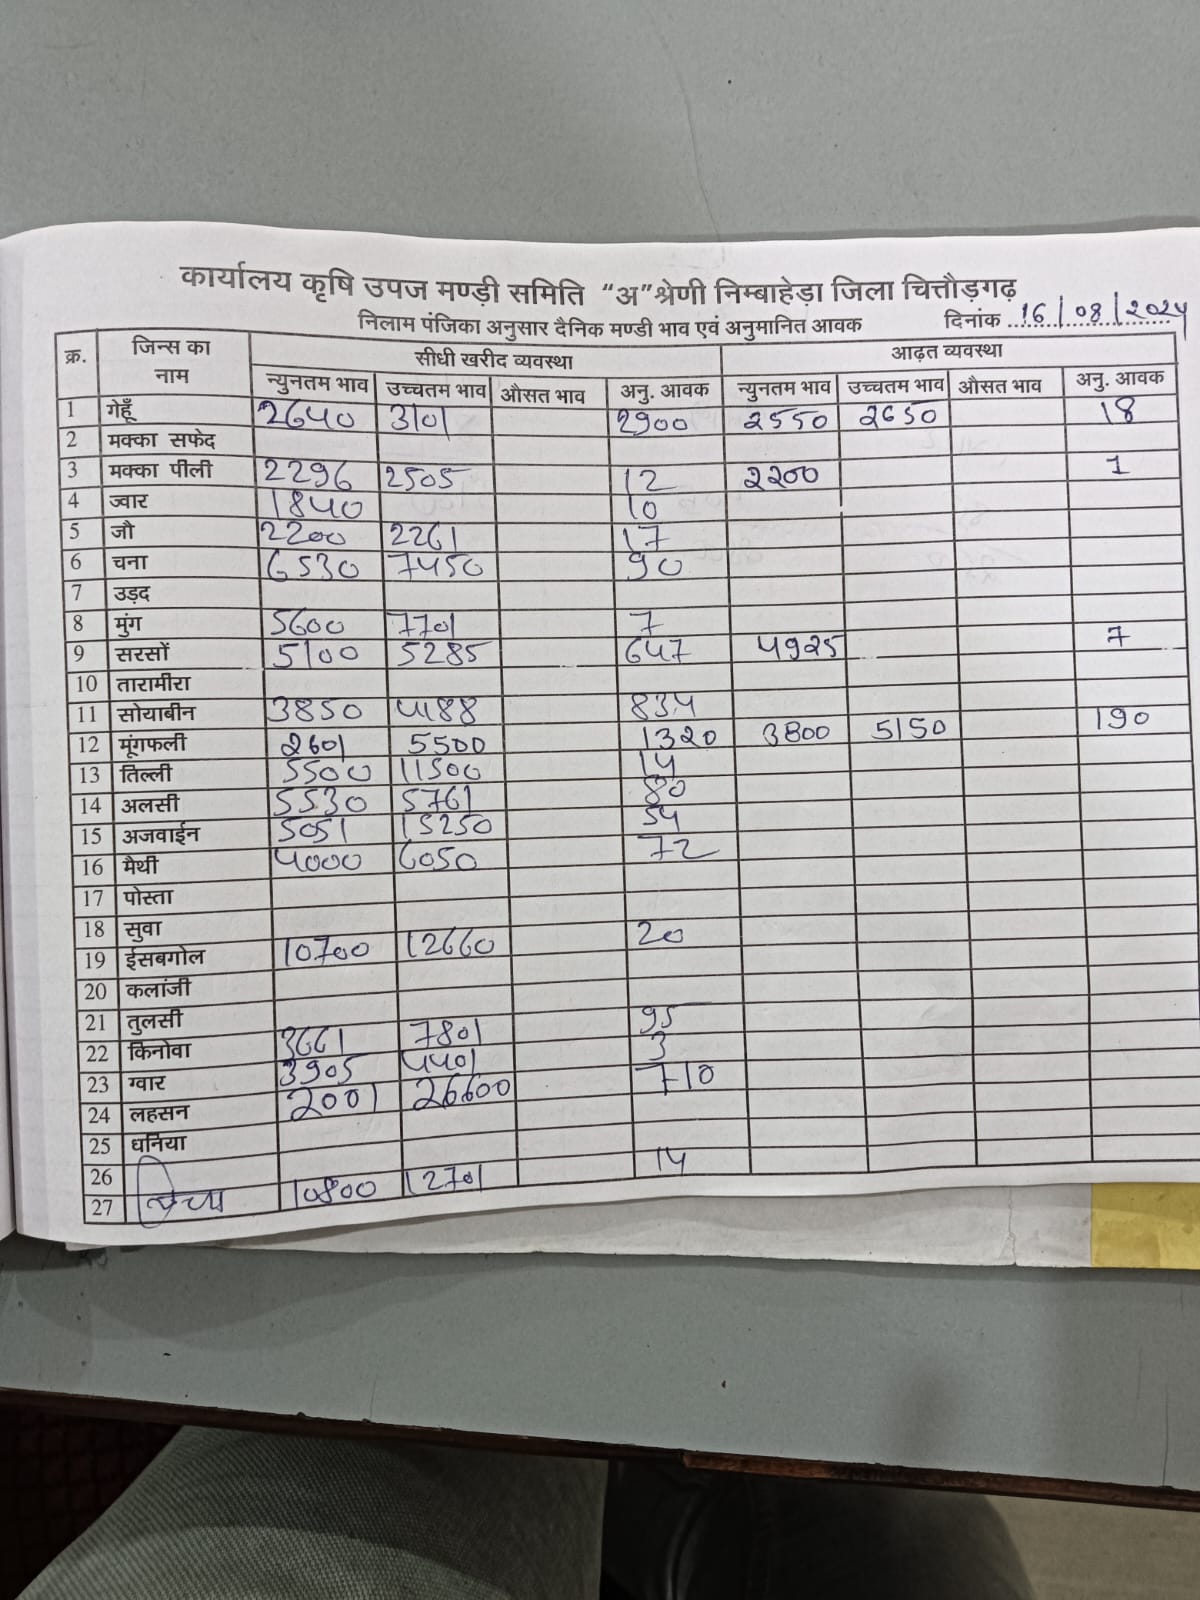 कार्यालय कृषि उपज मण्डी समिति "अ" श्रेणी निम्बाहेड़ा जिला चित्तौड़गढ़
निलाम पंजिका अनुसार दैनिक मण्डी भाव एवं अनुमानित आवक दिनांक 16/08/2024
क्र. जिन्स का नाम सीधी खरीद व्यवस्था आढ़त व्यवस्था
न्युनतम भाव उच्चतम भाव औसत भाव अनु. आवक न्युनतम भाव उच्चतम भाव औसत भाव अनु. आवक
1 गेहूँ 2640 3101 2900 2550 2650 18
2 मक्का सफेद
3 मक्का पीली 2296 2505 12 2200 1
4 ज्वार 1840 10
5 जौ 2200 2261 17
6 चना 6530 7450 90
7 उड़द
8 मुंग 5600 7701 7
9 सरसों 5100 5285 647 4925 7
10 तारामीरा
11 सोयाबीन 3850 4188 834
12 मूंगफली 2601 5500 1320 3800 5150 190
13 तिल्ली 5500 11500 14
14 अलसी 5530 5761 80
15 अजवाईन 5051 15250 54
16 मैथी 4000 6050 72
17 पोस्ता
18 सुवा
19 ईसबगोल 10700 12660 20
20 कलांजी
21 तुलसी
22 किनोवा 3661 7801 95
23 ग्वार 3905 4401 3
24 लहसन 2001 26600 710
25 धनिया
26
27 10800 12701 14